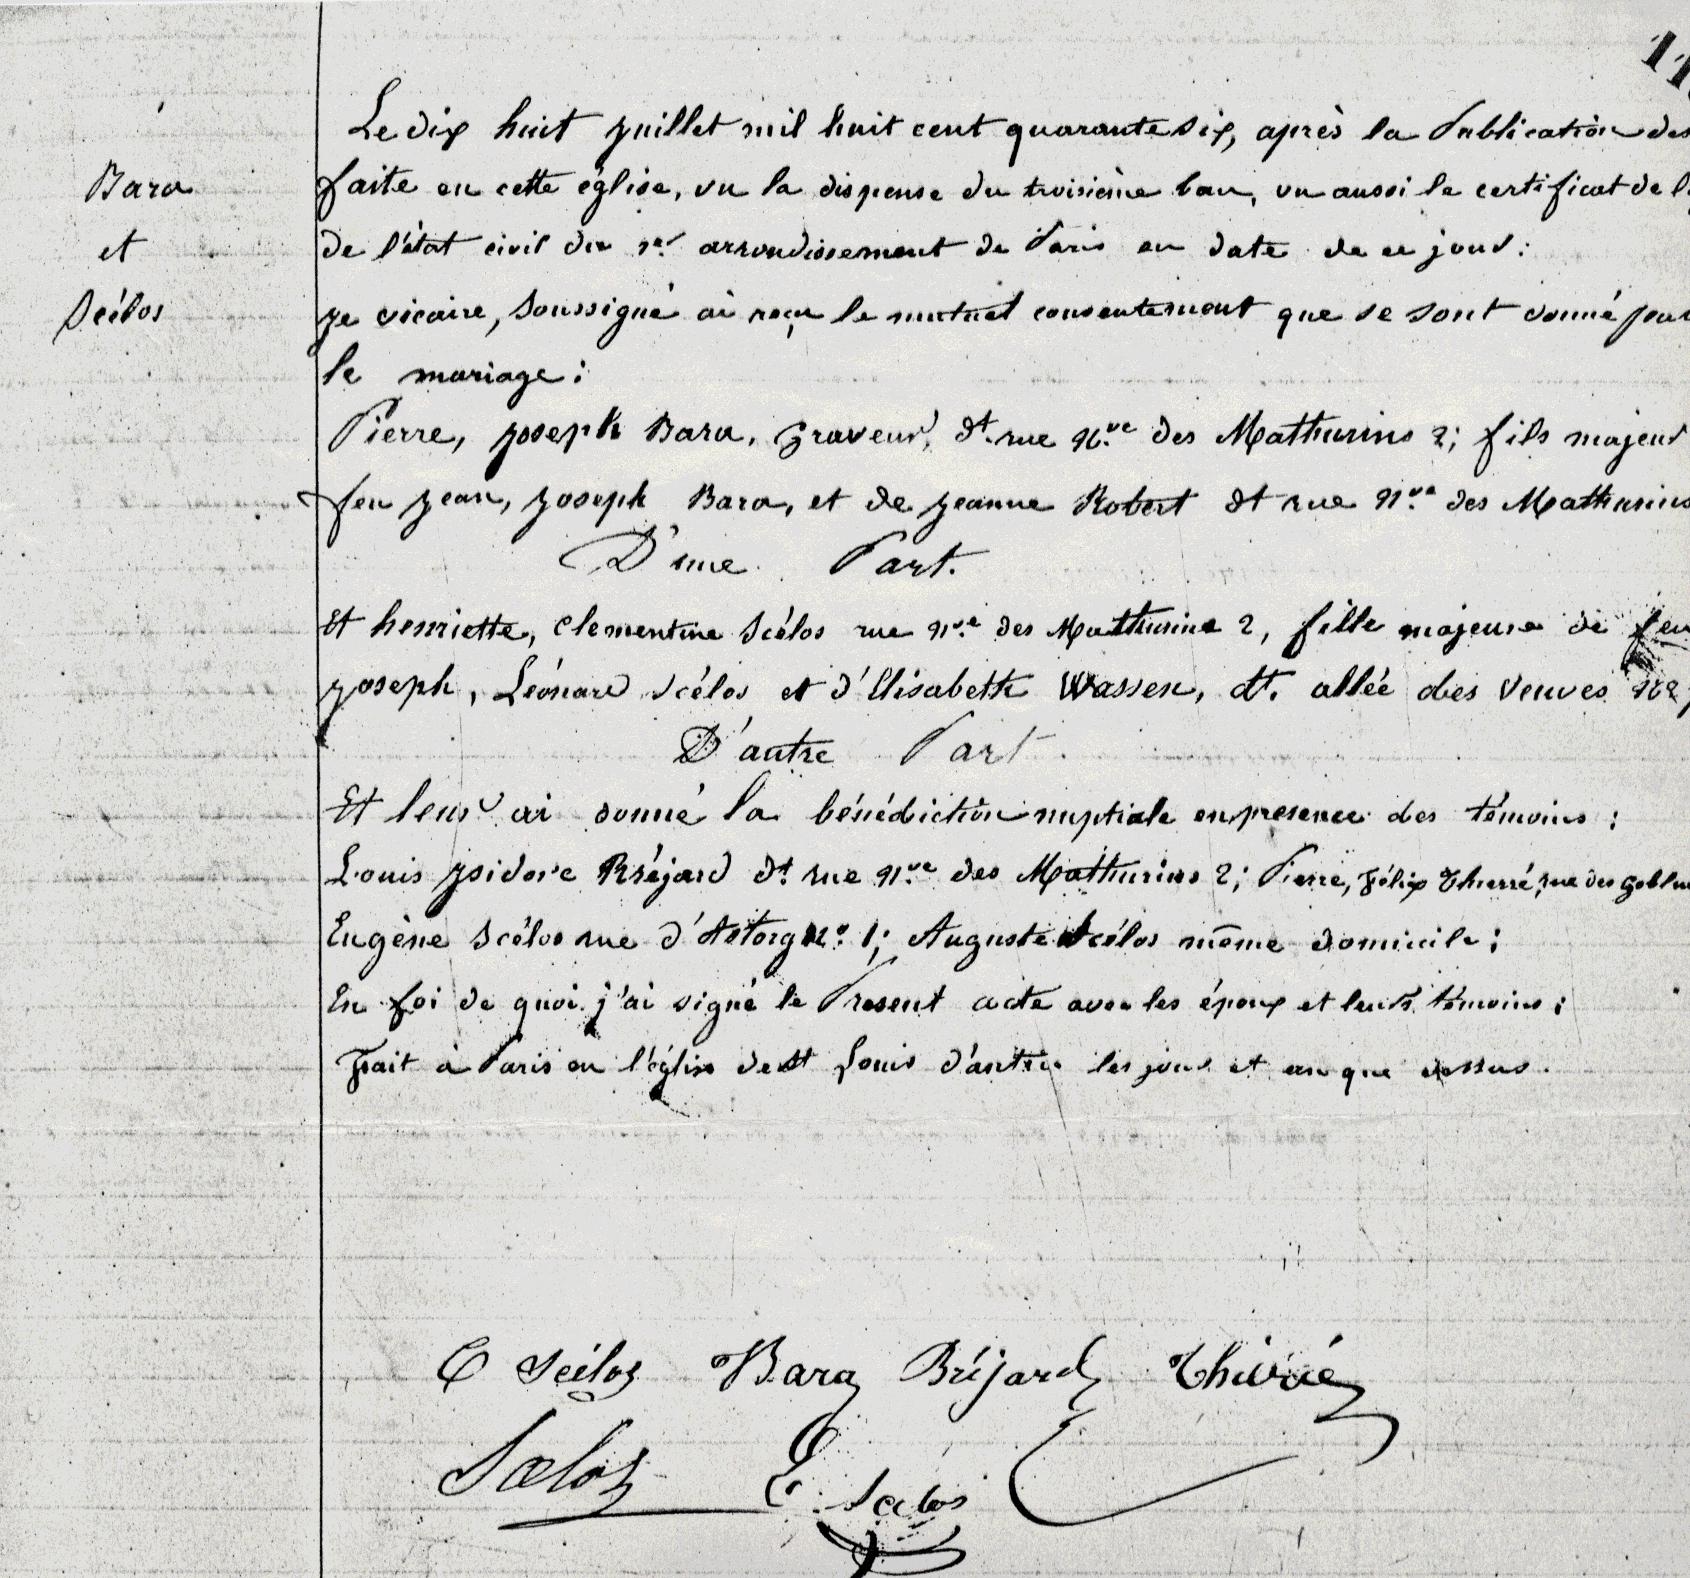 11
Le dix huit juillet mil huit cent quarante six, après la Publication des
Bara
faite en cette église, vu la dispense du troisième ban, vu aussi le certificat de l
et
de l'état civil du 1er arrondissement de Paris en date de ce jour:
Scélos
je vicaire, soussigné ai reçu le mutuel consentement que se sont donné pour
le mariage:
Pierre, joseph Bara, graveur, dt. rue Nve des Mathurins 2; fils majeur
feu jean, joseph Bara, et de jeanne Robert dt rue Nve des Mathurins
D'une Part.
Et henriette, Clementine Scélos rue Nve des Mathurins 2, fille majeure de feu
joseph, Léonard Scélos et d'Elisabeth Wassen, dt. allée des Veuves
D'autre Part.
Et leur ai donné la bénédiction nuptiale en presence des témoins:
Louis ysidore Bréjard dt rue Nve des Mathurins 2; Pierre, félix Thierré, rue des
Eugène Scélos rue d'Astorg No. 1; Auguste Scélos même domicile;
En foi de quoi j'ai signé le Présent acte avec les époux et leurs témoins:
Fait à Paris en l'église de St Louis d'antin les jour et an que dessus.
C Scélos Bara Bréjard Thierré
Scelos E. Scelos